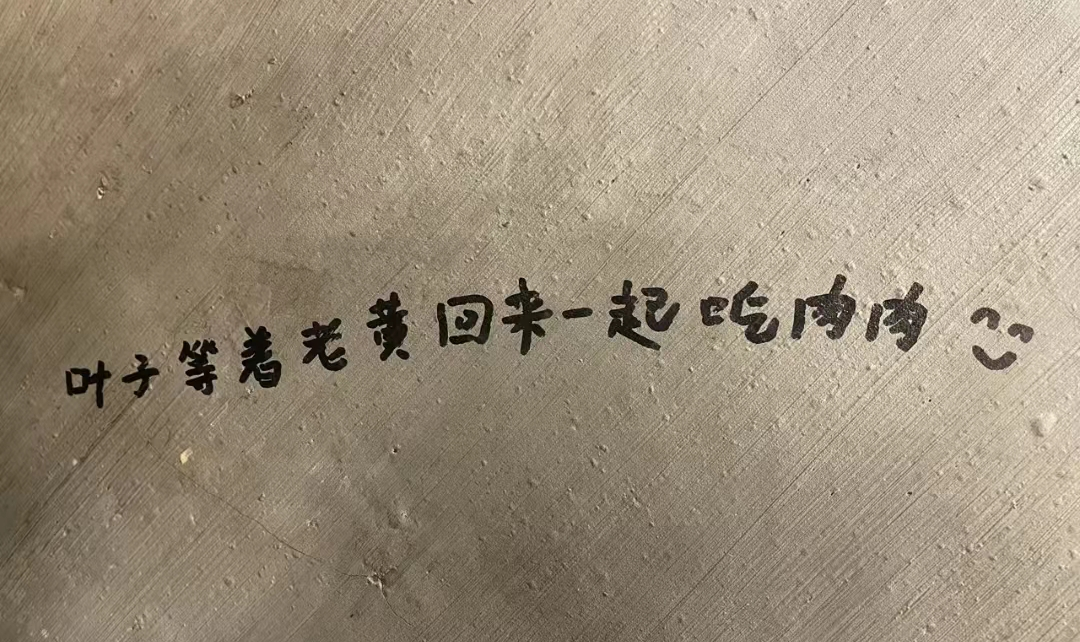 叶子等着老黄回来一起吃肉肉